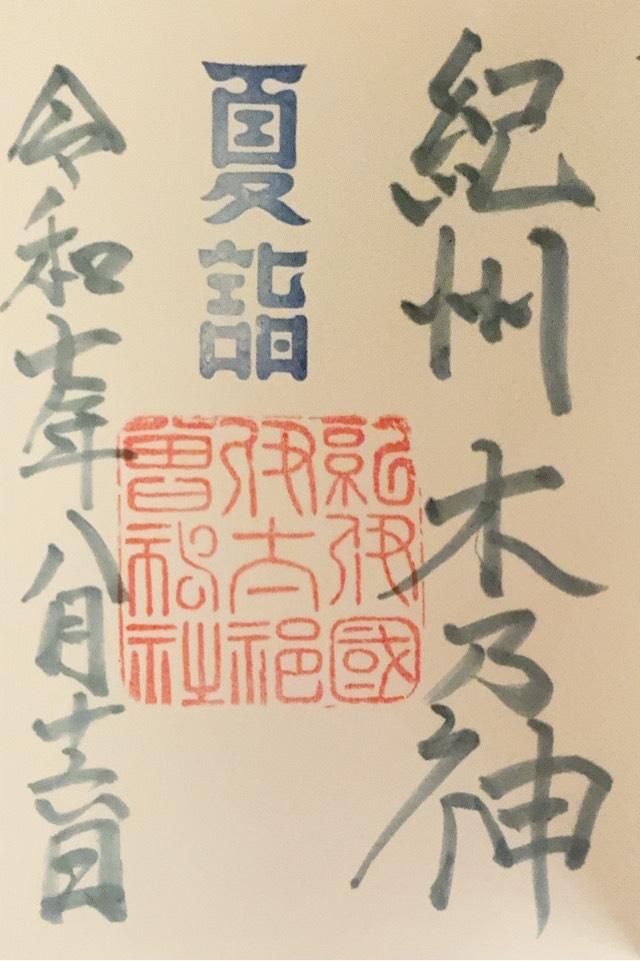 紀州 木乃神
夏詣
紀伊國
伊太祁
曽神社
令和七年八月十六日